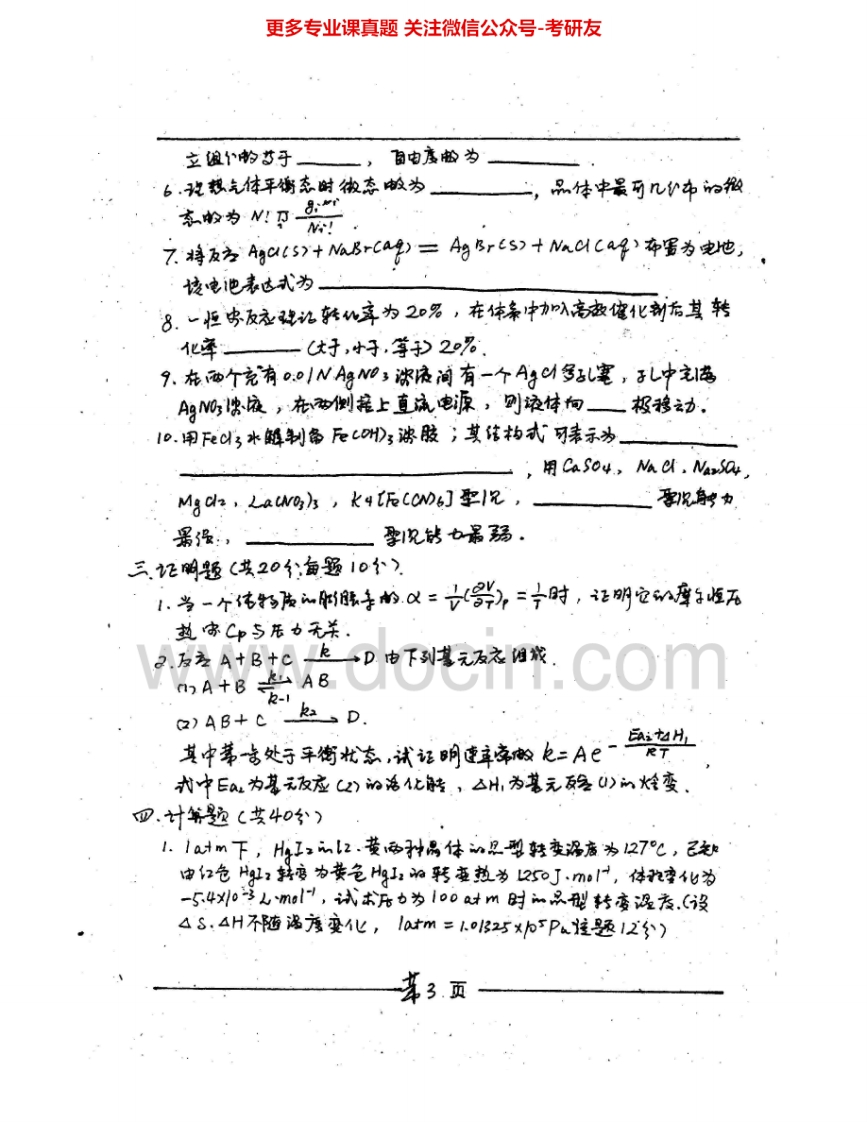 更多专业课真题 关注微信公众号-考研友
立组分的等于______，自由度数为______．
6. 理想气体平衡态时微态数为______，晶体中最可几分布的微
态数为 N!∏ᵢ gᵢ^Nᵢ / Nᵢ! ．
7. 将反应 AgCl(s)+NaBr(aq) = AgBr(s)+NaCl(aq) 布置为电池，
该电池表达式为______
8. 一恒容反应理论转化率为20%，在体系中加入高效催化剂后其转
化率______(大于,小于,等于) 20%．
9. 在两个充有0.01N AgNO₃溶液间有一个AgCl多孔塞，孔中充满
AgNO₃溶液，在两侧接上直流电源，则液体向____极移动．
10. 用FeCl₃水解制备Fe(OH)₃溶胶；其结构式可表示为______
______，用CaSO₄，NaCl．Na₂SO₄，
MgCl₂，La(NO₃)₃，K₄[Fe(CN)₆]聚沉，______聚沉能力
最强．，______聚沉能力最弱．
三.证明题(共20分,每题10分)．
1. 当一个纯物质的膨胀系数 α = 1/V(∂V/∂T)ₚ = 1/T 时，证明它的摩尔恒压
热容Cp与压力无关．
2. 反应 A+B+C —k→ D 由下列基元反应组成．
(1) A+B ⇌ AB k₁ k₋₁
(2) AB+C —k₂→ D．
其中第一步处于平衡状态，试证明速率常数 k=Ae^-(Ea₂+ΔH₁)/RT ，
式中Ea₂为基元反应(2)的活化能，ΔH₁为基元反应(1)的焓变．
四.计算题(共40分)
1. 1atm下，HgI₂的红．黄两种晶体的晶型转变温度为127°C，已知
由红色HgI₂转变为黄色HgI₂的转变热为1250J·mol⁻¹，体积变化为
-5.4×10⁻³L·mol⁻¹，试求压力为100atm时的晶型转变温度．(设
ΔS．ΔH不随温度变化，1atm=1.01325×10⁵Pa,本题12分)
第3页
www.docin.com